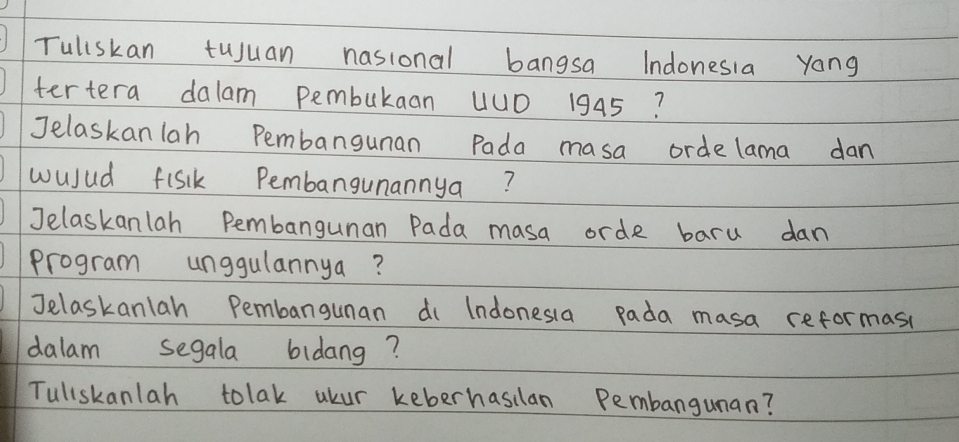 Tuliskan tujuan nasional bangsa Indonesia yang
tertera dalam Pembukaan UUD 1945 ?
Jelaskanlah Pembangunan Pada masa orde lama dan
wujud fisik Pembangunannya ?
Jelaskanlah Pembangunan Pada masa orde baru dan
Program unggulannya ?
Jelaskanlah Pembangunan di Indonesia pada masa reformasi
dalam segala bidang ?
Tuliskanlah tolak ukur keberhasilan Pembangunan?